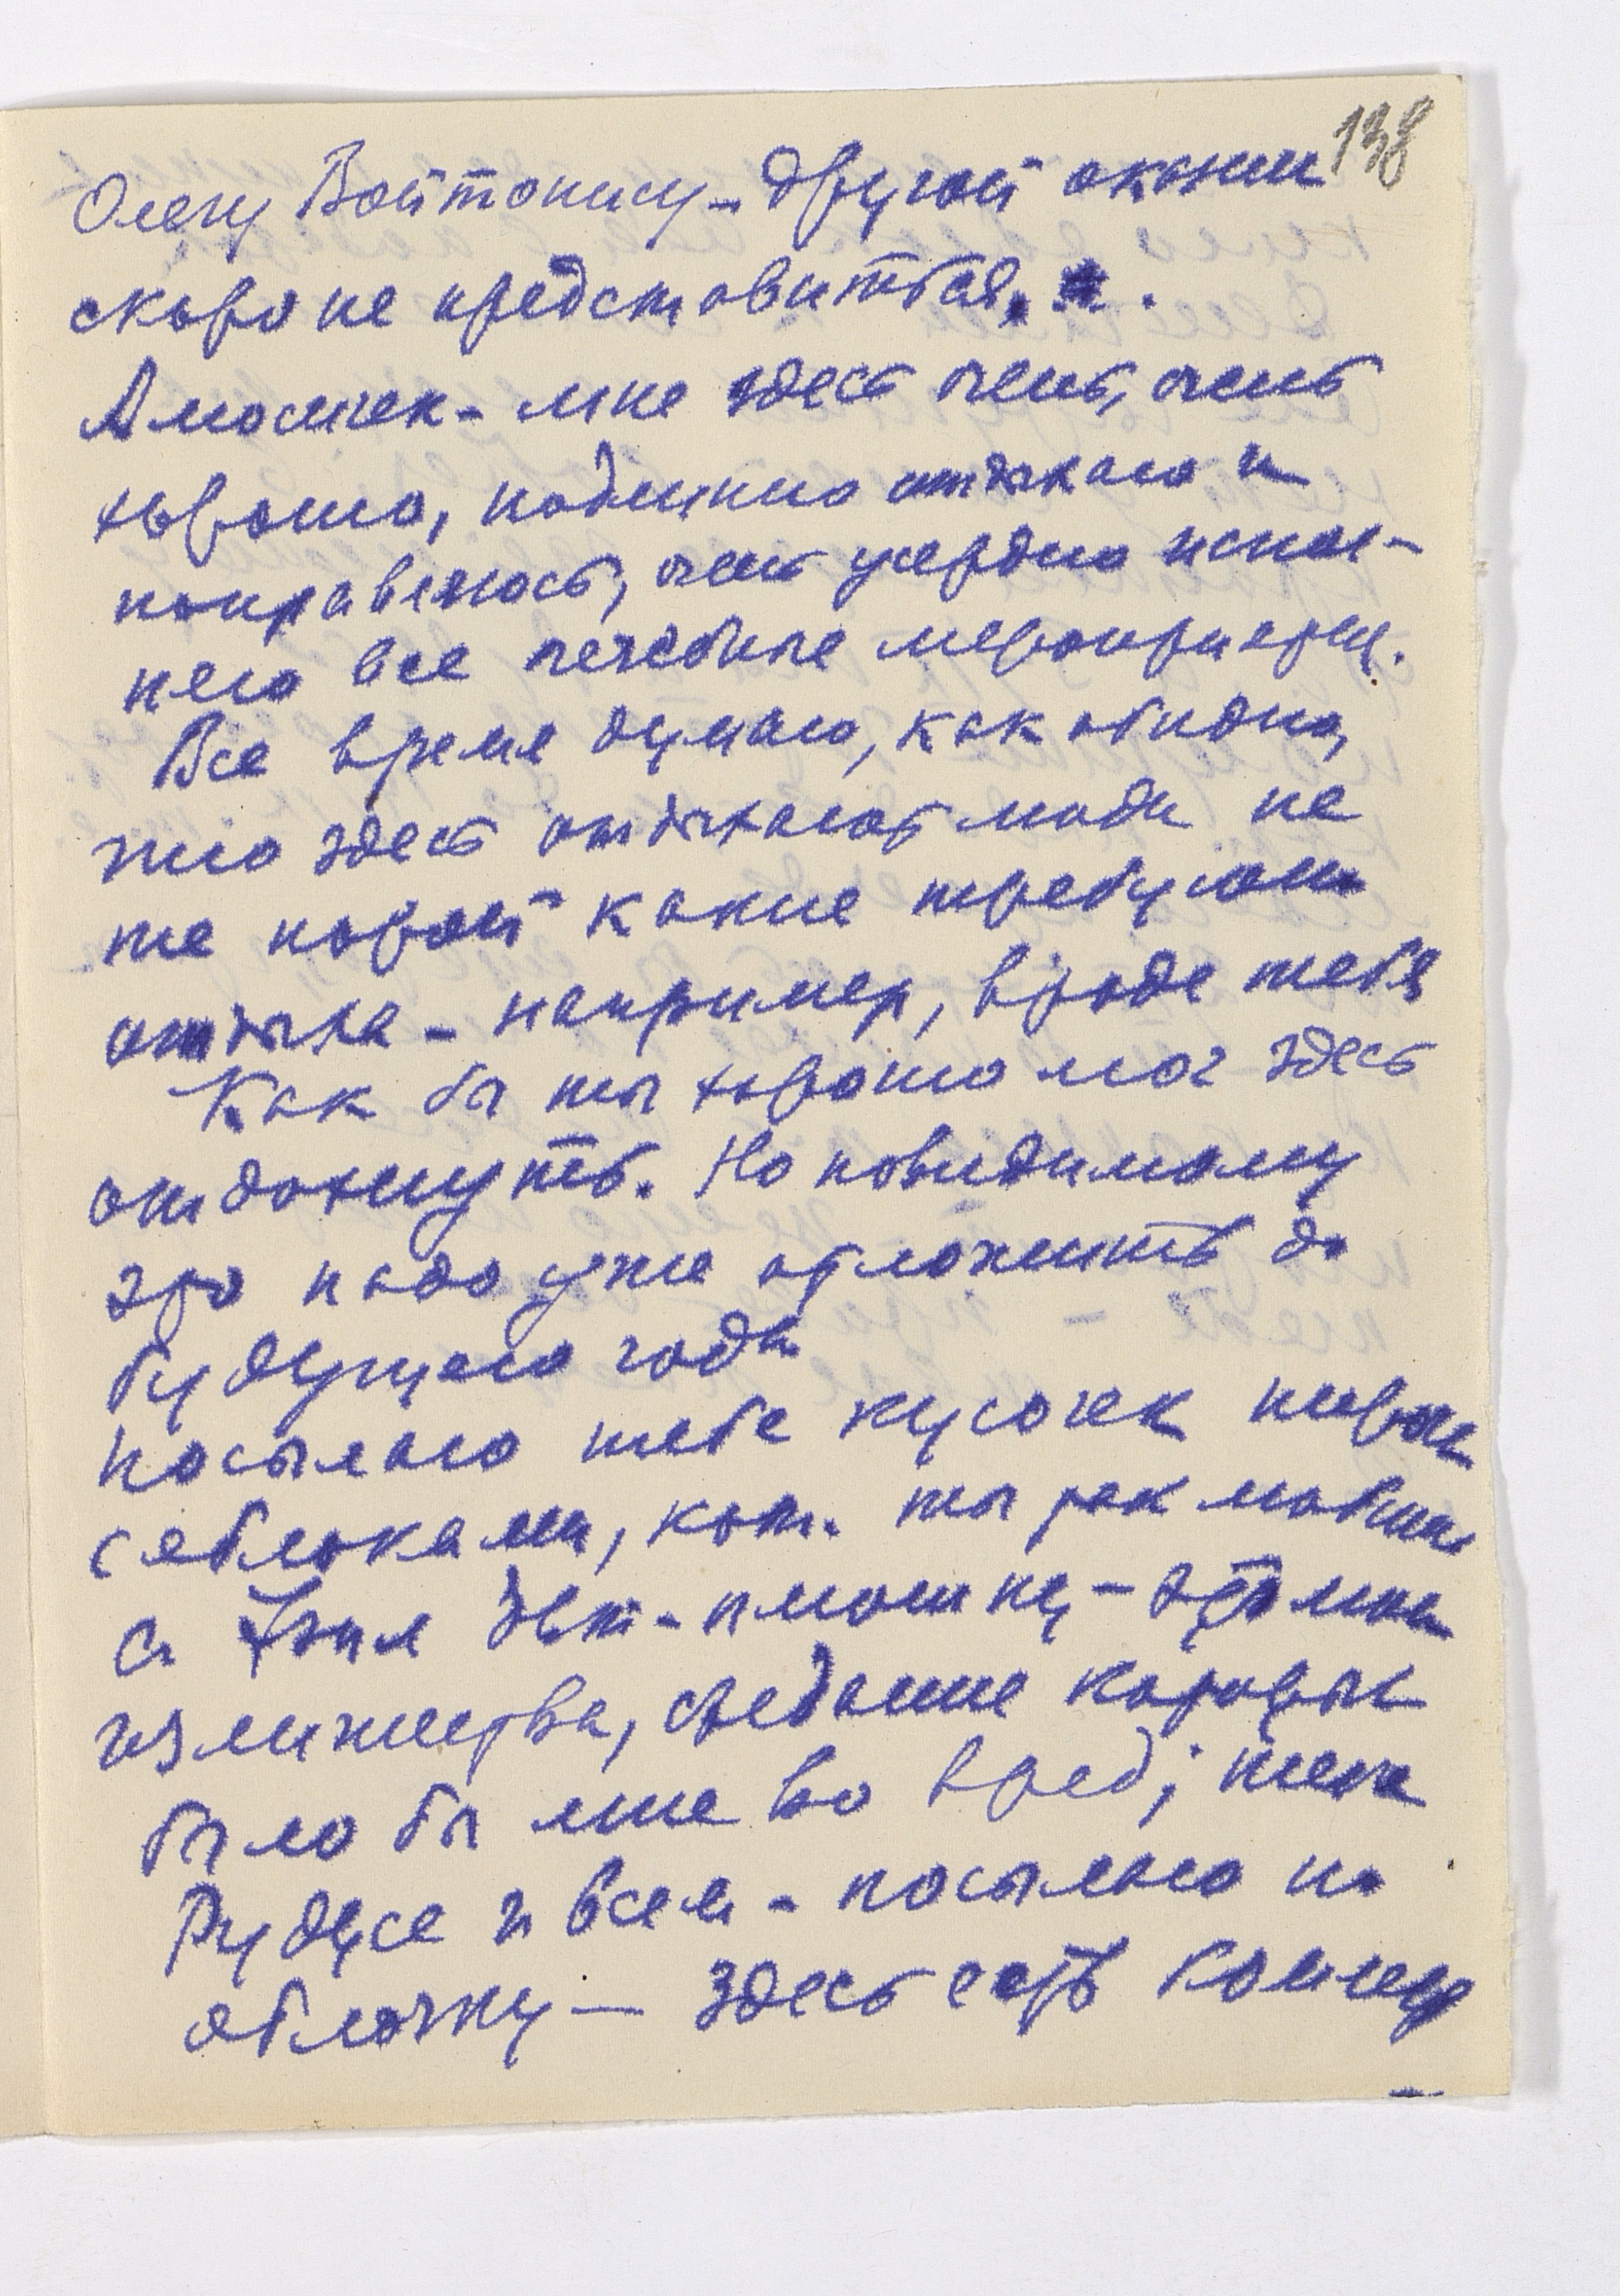 138
Олегу Войтонису – другой оказии
скоро не представиться.
Алюсичек – мне здесь очень, очень
хорошо, подлинно отдыхаю и
поправляюсь, очень усердно испол-
няю все лечебные мероприят.
Все время думаю, как обидно,
что здесь отдыхают люди не
те порой какие требуют
отдыха – например, вроде тебя
Как бы ты хорошо мог здесь
отдохнуть. Но повидимому
это надо уже отложить до
будущего года
Посылаю тебе кусочек пирога
с яблоками, кот. ты так любишь
а дет-плошку – это мои
излишества, съедание которых
было бы мне во вред; тебе
Рудусе и всем – посылаю по
яблочку – здесь есть